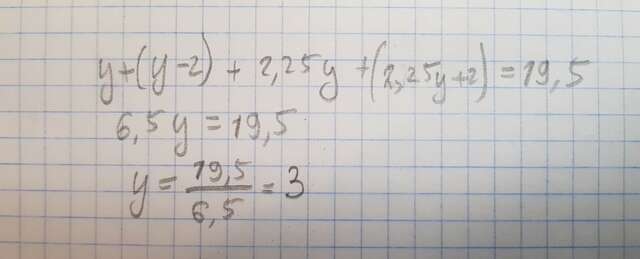 y+(y-2) + 2,25y +(2,25y+2) = 19,5
6,5y = 19,5
y = 19,5/6,5 = 3